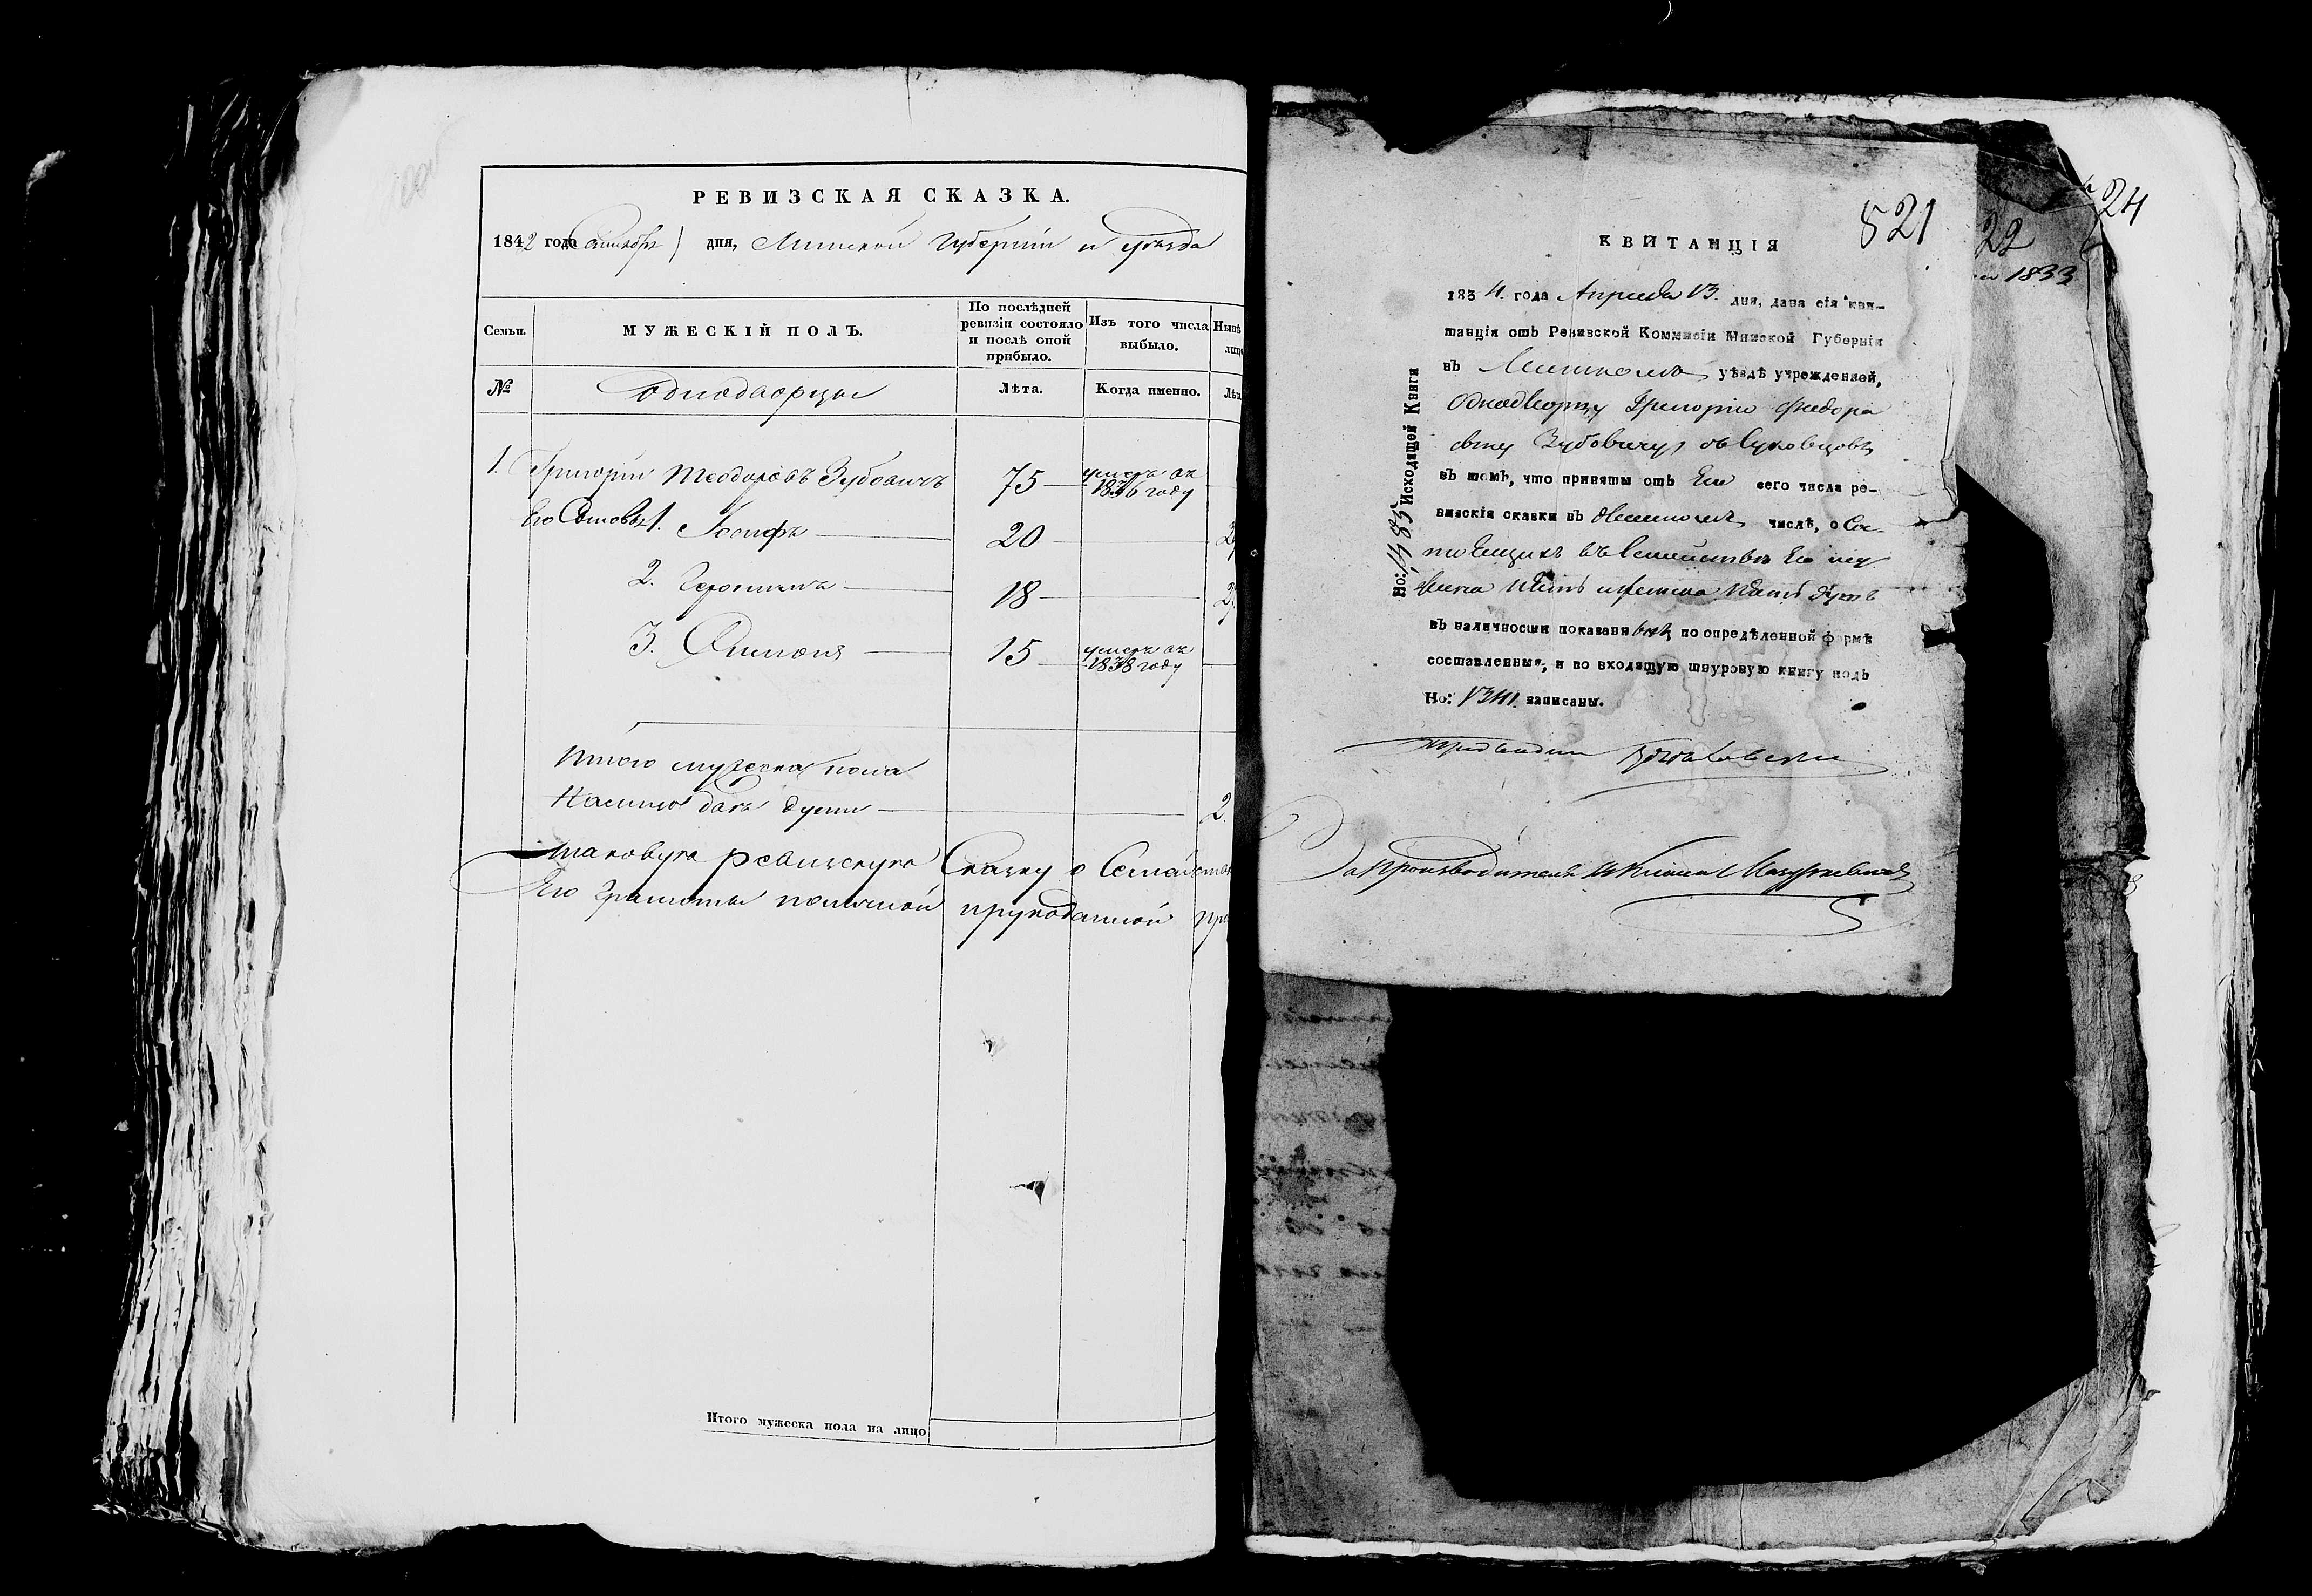 РЕВИЗСКАЯ СКАЗКА.
1842 года Октября 1 дня, Минской Губернии и уезда
Семьи.
МУЖЕСКІЙ ПОЛЪ.
По послѣдней ревизіи состояло и послѣ оной прибыло.
Изъ того числа выбыло.
Нынѣ
лицо
№
Однодворцы
Лѣта.
Когда именно.
Лѣта
1. Григорій Теодоровъ Зубовичъ 75 умеръ въ 1836 году
Его Сыновья 1. Іосифъ 20
2. Героним 18
3. Симонъ 15 умеръ въ 1838 году
Итого мужеска пола
Налицо двѣ души 2.
Таковую ревизскую Сказку о Семействѣ
Его грамоты польской прукоданной
Итого мужеска пола на лицо
521
24
22
1833
КВИТАНЦІЯ
1834. года Апреля 13. дня, дана сія кви-
танція отъ Ревизской Коммисіи Минской Губерніи
въ Минскомъ уѣздѣ учрежденной,
Однодворцу Григорію Федоро
вичу Зубовичу
въ томъ, что приняты отъ Его сего числа ре-
визскія сказки въ числѣ, о Сос-
тоящихъ въ Семействѣ Его муж
жеска пять и женска пять душъ
въ наличности показанныхъ, по опредѣленной формѣ
составленныя, и во входящую шнуровую книгу подъ
Но: 1341 записаны.
Но: 1485 Исходящей Книги